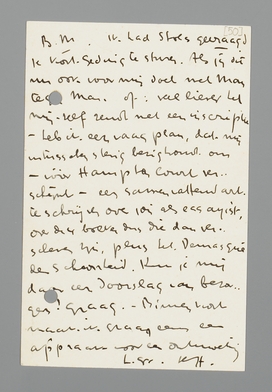 [50]
B. M. Ik had Stols gevraagd
je Kort geding te sturen. Als jij dit
nu ook voor mij doet met Man
tegen Man. Of: veel liever het
mij zelf zendt met een inscriptie
- heb ik een vaag plan, dat mij
steeds bezighoudt, om
- vóór Hampton Court ver-
schijnt - een samenvattend art.
te schrijven over jou als essayist,
over drie boeken die dan ver-
schenen zijn, plus het Démasqué
der Schoonheid. Kun je mij
daar een doorslag van bezor-
gen? Graag. - Binnenkort
maar ik graag eens een
afspraak voor een ontmoeting